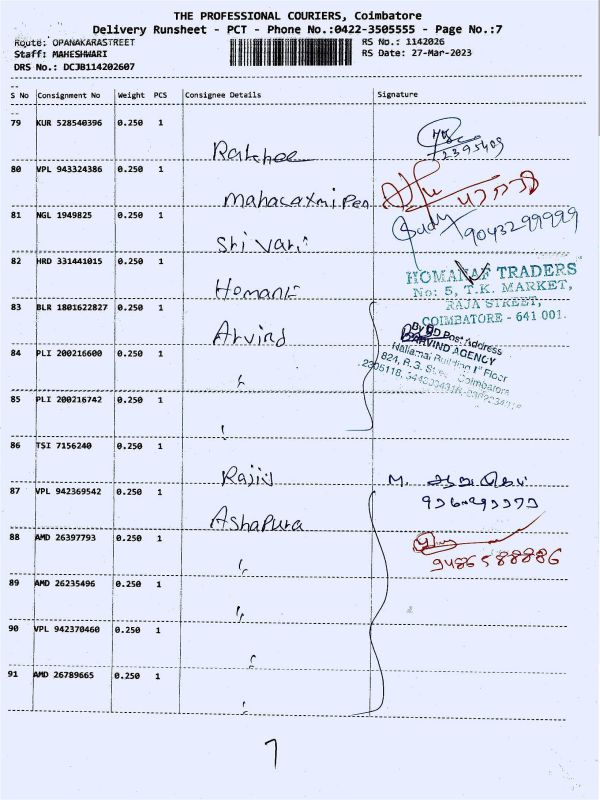 THE PROFESSIONAL COURIERS, Coimbatore
Delivery Runsheet - PCT - Phone No.:0422-3505555 - Page No.:7
Route: OPANAKARASTREET RS No.: 1142026
Staff: MAHESHWARI RS Date: 27-Mar-2023
DRS No.: DCJB114202607
S No Consignment No Weight PCS Consignee Details Signature
79 KUR 528540396 0.250 1
Rakhee 72395409
80 VPL 943324386 0.250 1
Mahalaxmi Pen
81 NGL 1949825 0.250 1
Shi Vari 9043299999
82 HRD 331441015 0.250 1
Homank HOMANAF TRADERS
No: 5, T.K. MARKET,
RAJA STREET,
COIMBATORE - 641 001.
83 BLR 1801622827 0.250 1
Arvind Post Address
ARVIND AGENCY
Nallamai Building 1st Floor
824, R.G. Coimbatore
84 PLI 200216600 0.250 1
"
85 PLI 200216742 0.250 1
"
86 TSI 7156240 0.250 1
Rajiv M.
87 VPL 942369542 0.250 1
Ashapura
88 AMD 26397793 0.250 1
" 9486588886
89 AMD 26235496 0.250 1
"
90 VPL 942370460 0.250 1
"
91 AMD 26789665 0.250 1
"
7